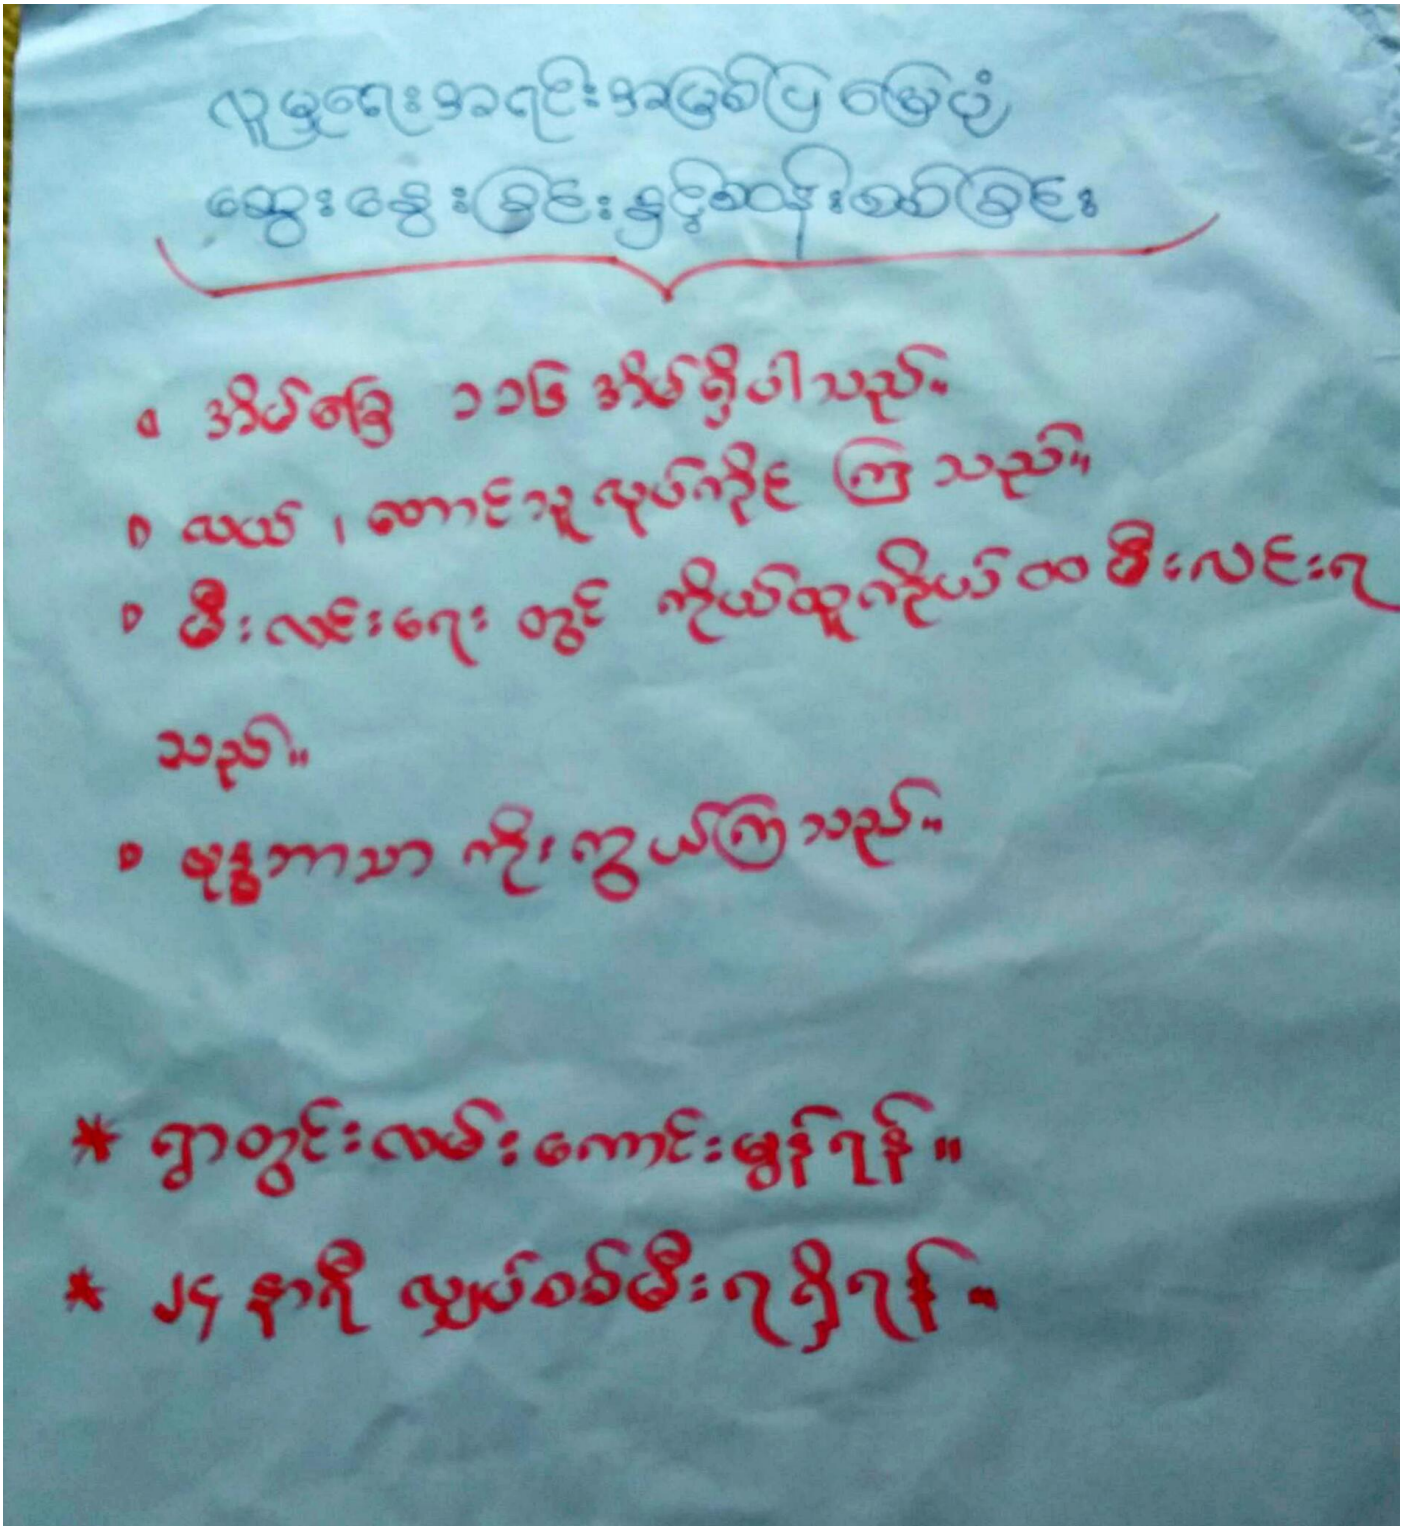 လူမှုရေးအရင်းအမြစ်ပြ မြေပုံ
ဆွေးနွေးခြင်းနှင့်ဆန်းစစ်ခြင်း
အိမ်ခြေ ၁၁၆ အိမ်ရှိပါသည်။
လယ် ၊ တောင်သူလုပ်ကိုင် ကြသည်။
မီးလင်းရေး တွင် ကိုယ်ထူကိုယ်ထ မီးလင်းရ
သည်။
ဗုဒ္ဓဘာသာ ကိုးကွယ်ကြသည်။
* ရွာတွင်းလမ်းကောင်းမွန်ရန်။
* ၂၄ နာရီ လျှပ်စစ်မီးရရှိရန်။